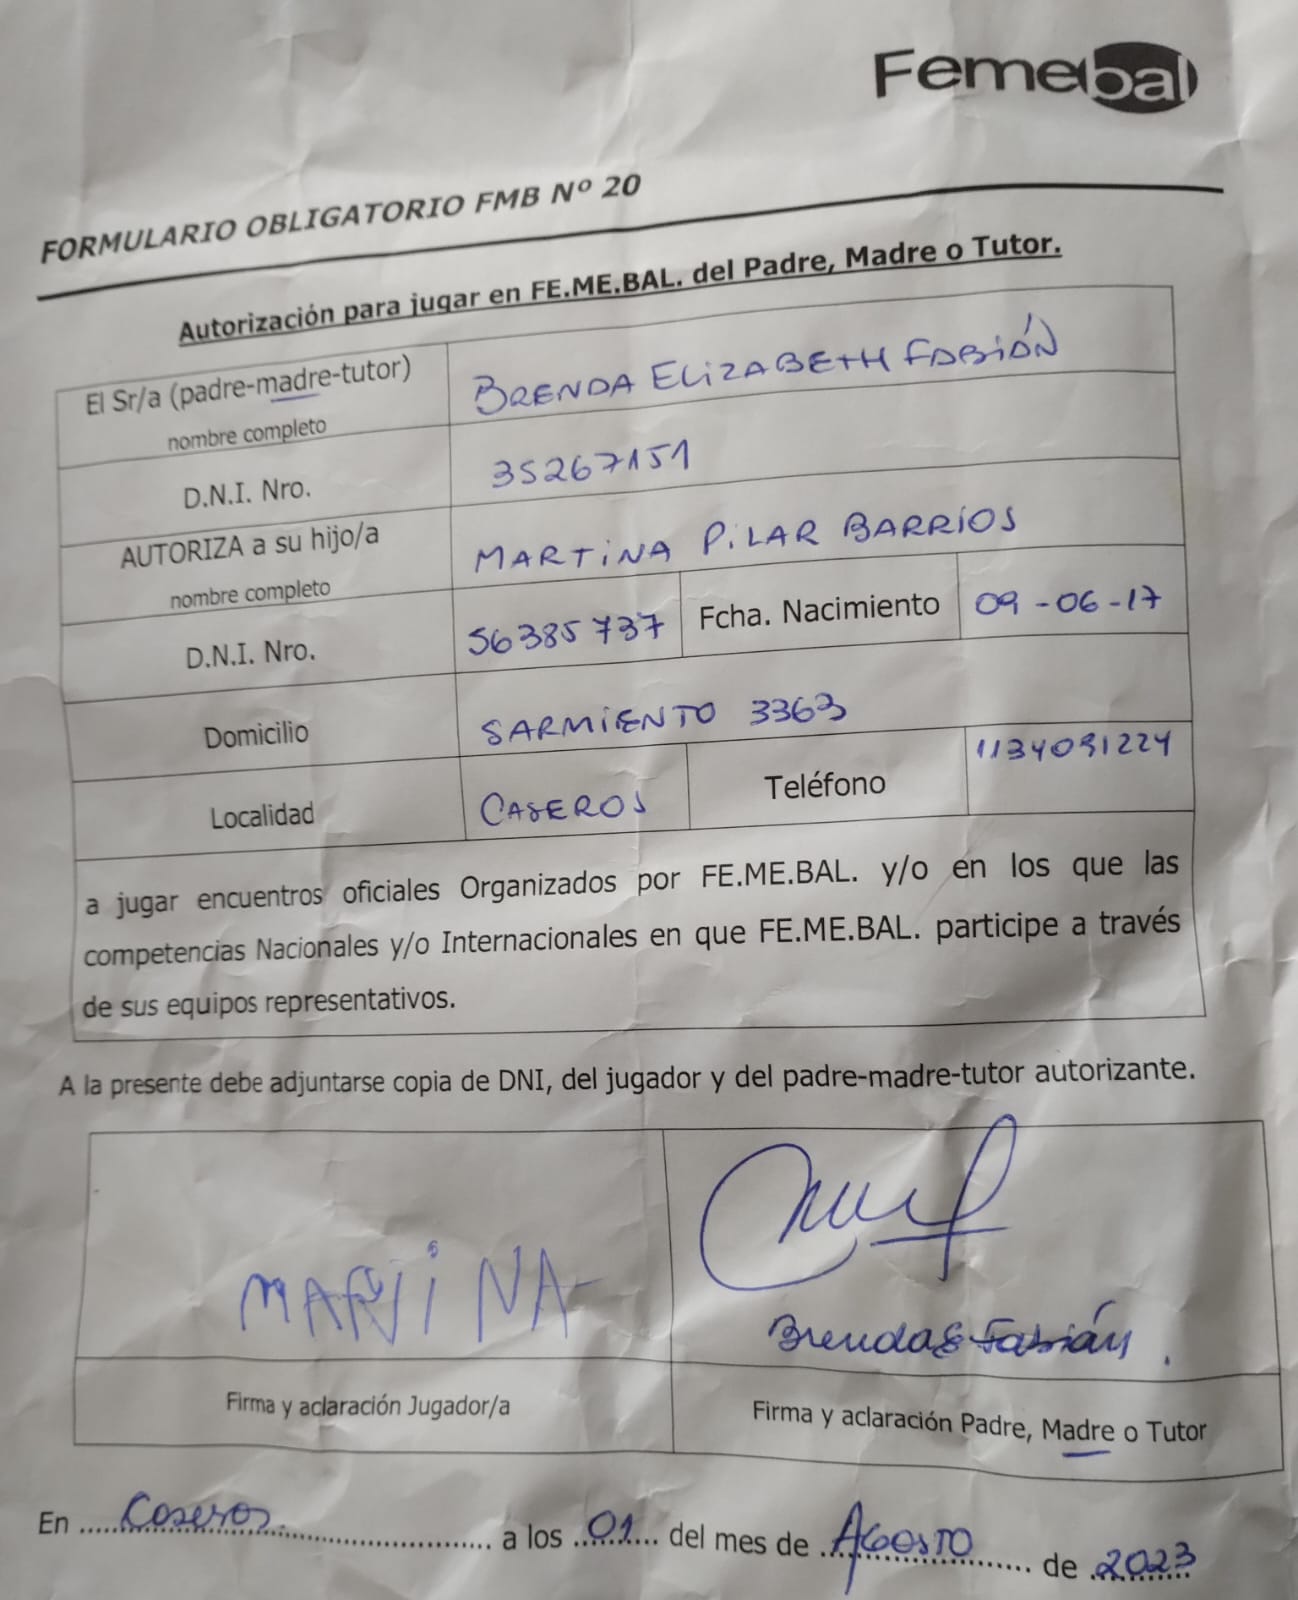 Femebal
FORMULARIO OBLIGATORIO FMB Nº 20
Autorización para jugar en FE.ME.BAL. del Padre, Madre o Tutor.
El Sr/a (padre-madre-tutor)
nombre completo
BRENDA ELIZABETH FABIÁN
D.N.I. Nro.
35267151
AUTORIZA a su hijo/a
nombre completo
MARTINA PILAR BARRIOS
D.N.I. Nro.
56385737
Fcha. Nacimiento
09-06-17
Domicilio
SARMIENTO 3363
Localidad
CASEROS
Teléfono
1134091224
a jugar encuentros oficiales Organizados por FE.ME.BAL. y/o en los que las
competencias Nacionales y/o Internacionales en que FE.ME.BAL. participe a través
de sus equipos representativos.
A la presente debe adjuntarse copia de DNI, del jugador y del padre-madre-tutor autorizante.
MARTINA
Brenda E Fabián.
Firma y aclaración Jugador/a
Firma y aclaración Padre, Madre o Tutor
En Caseros a los 01 del mes de AGOSTO de 2023